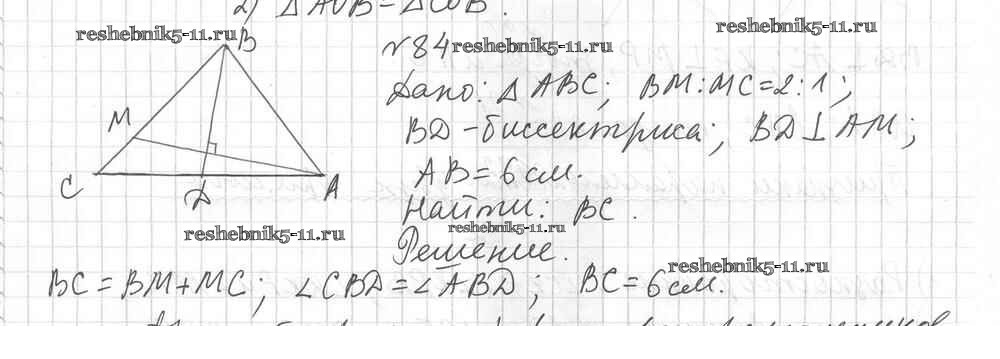 2) △AOB=△COB.
reshebnik5-11.ru
reshebnik5-11.ru
B
№84 reshebnik5-11.ru
Дано: △ABC; BM:MC=2:1;
M
BD-биссектриса; BD⊥AM;
C
D
A
AB=6см.
Найти: BC.
reshebnik5-11.ru
reshebnik5-11.ru
Решение.
reshebnik5-11.ru
BC=BM+MC; ∠CBD=∠ABD; BC=6см.